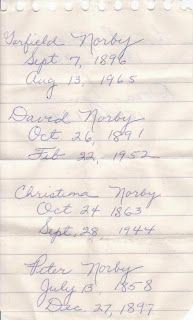 Garfield Norby
Sept 7, 1896
Aug 13, 1965
David Norby
Oct 26, 1891
Feb 22, 1952
Christina Norby
Oct 24 1863
Sept 28 1944
Peter Norby
July 13 1858
Dec 27, 1897